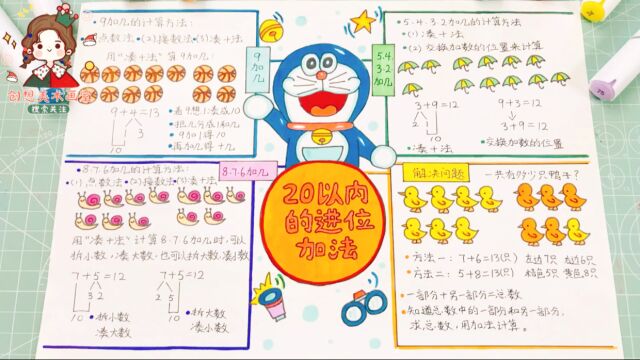 创想美术画室
搜索关注
9加几的计算方法:
(1)点数法 (2)接数法 (3)凑十法
用“凑十法”算9加几:
9+4=13
1 3
10
看9想1凑成10
把几分成1和几
9加1得10
再加几得十几
9加几
5.4.3.2加几
5.4.3.2加几的计算方法
(1)凑十法
(2)交换加数的位置来计算
3+9=12
2 1
10
凑十法
9+3=12
3+9=12
交换加数的位置
8.7.6加几
8.7.6加几的计算方法:
(1)点数法 (2)接数法 (3)凑十法
用“凑十法”计算8.7.6加几时,可以
拆小数,凑大数,也可以拆大数,凑小数
7+5=12
3 2
10
拆小数
凑大数
7+5=12
2 5
10
拆大数
凑小数
20以内
的进位
加法
解决问题
一共有多少只鸭子?
方法一:7+6=13(只) 左边7只 右边6只
方法二:5+8=13(只) 橘色5只 黄色8只
一部分+另一部分=总数
知道总数中的一部分和另一部分,
求总数,用加法计算。